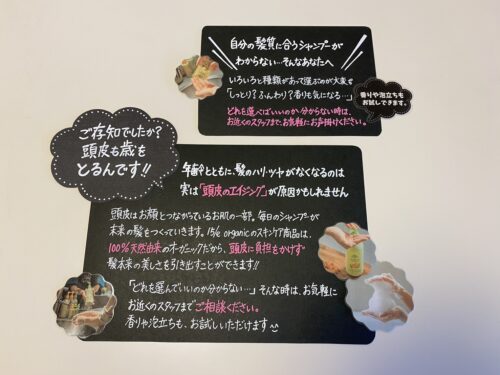 自分の髪質に合うシャンプーが
わからない…そんなあなたへ
いろいろと種類があって選ぶのが大変を
「しっとり？ふんわり？香りも気になる…」
どれを選べばいいのか分からない時は、
お近くのスタッフまで、お気軽にお声掛けください。
香りや泡立ちも
お試しできます。
ご存知でしたか？
頭皮も歳を
とるんです!!
年齢とともに、髪のハリ・ツヤがなくなるのは
実は「頭皮のエイジング」が原因かもしれません
頭皮はお顔とつながっているお肌の一部。毎日のシャンプーが
未来の髪をつくっていきます。
organicのスキンケア商品は、
100%天然由来のオーガニックだから、頭皮に負担をかけず
髪本来の美しさを引き出すことができます!!
「どれを選んでいいのか分からない…」そんな時は、お気軽に
お近くのスタッフまでご相談ください。
香りや泡立ちも、お試しいただけます